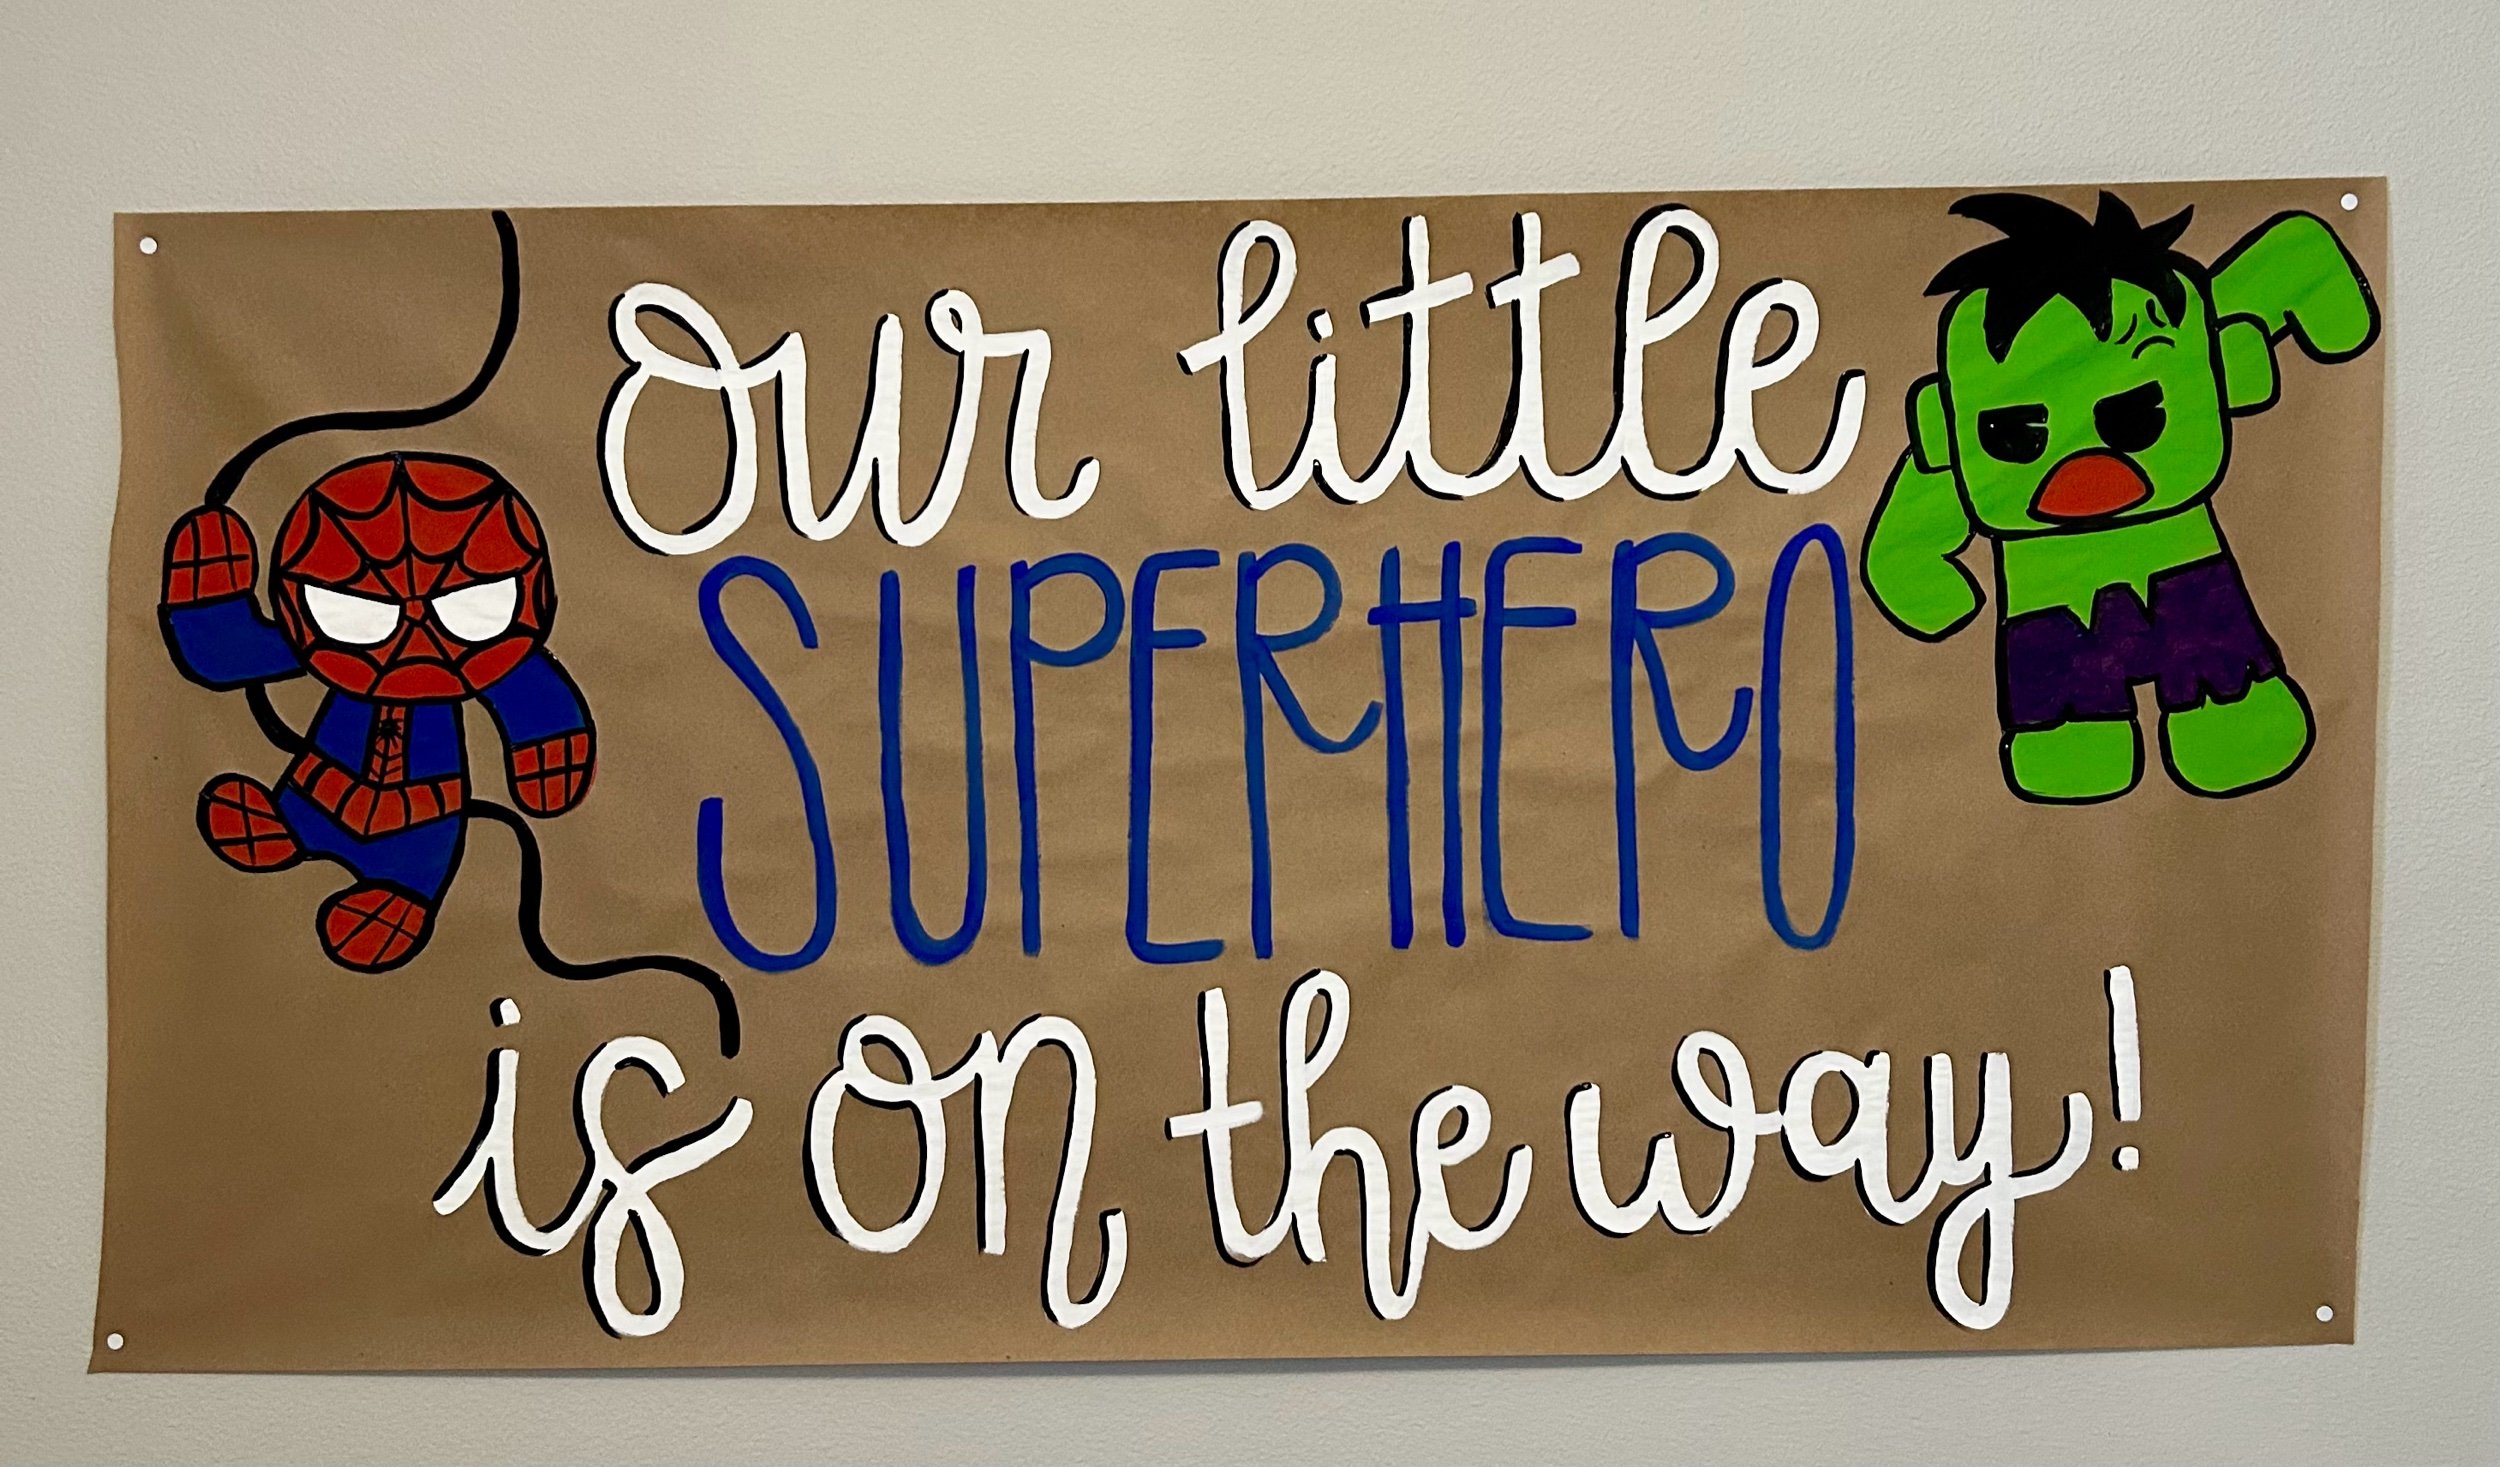 our little
SUPERHERO
is on the way!